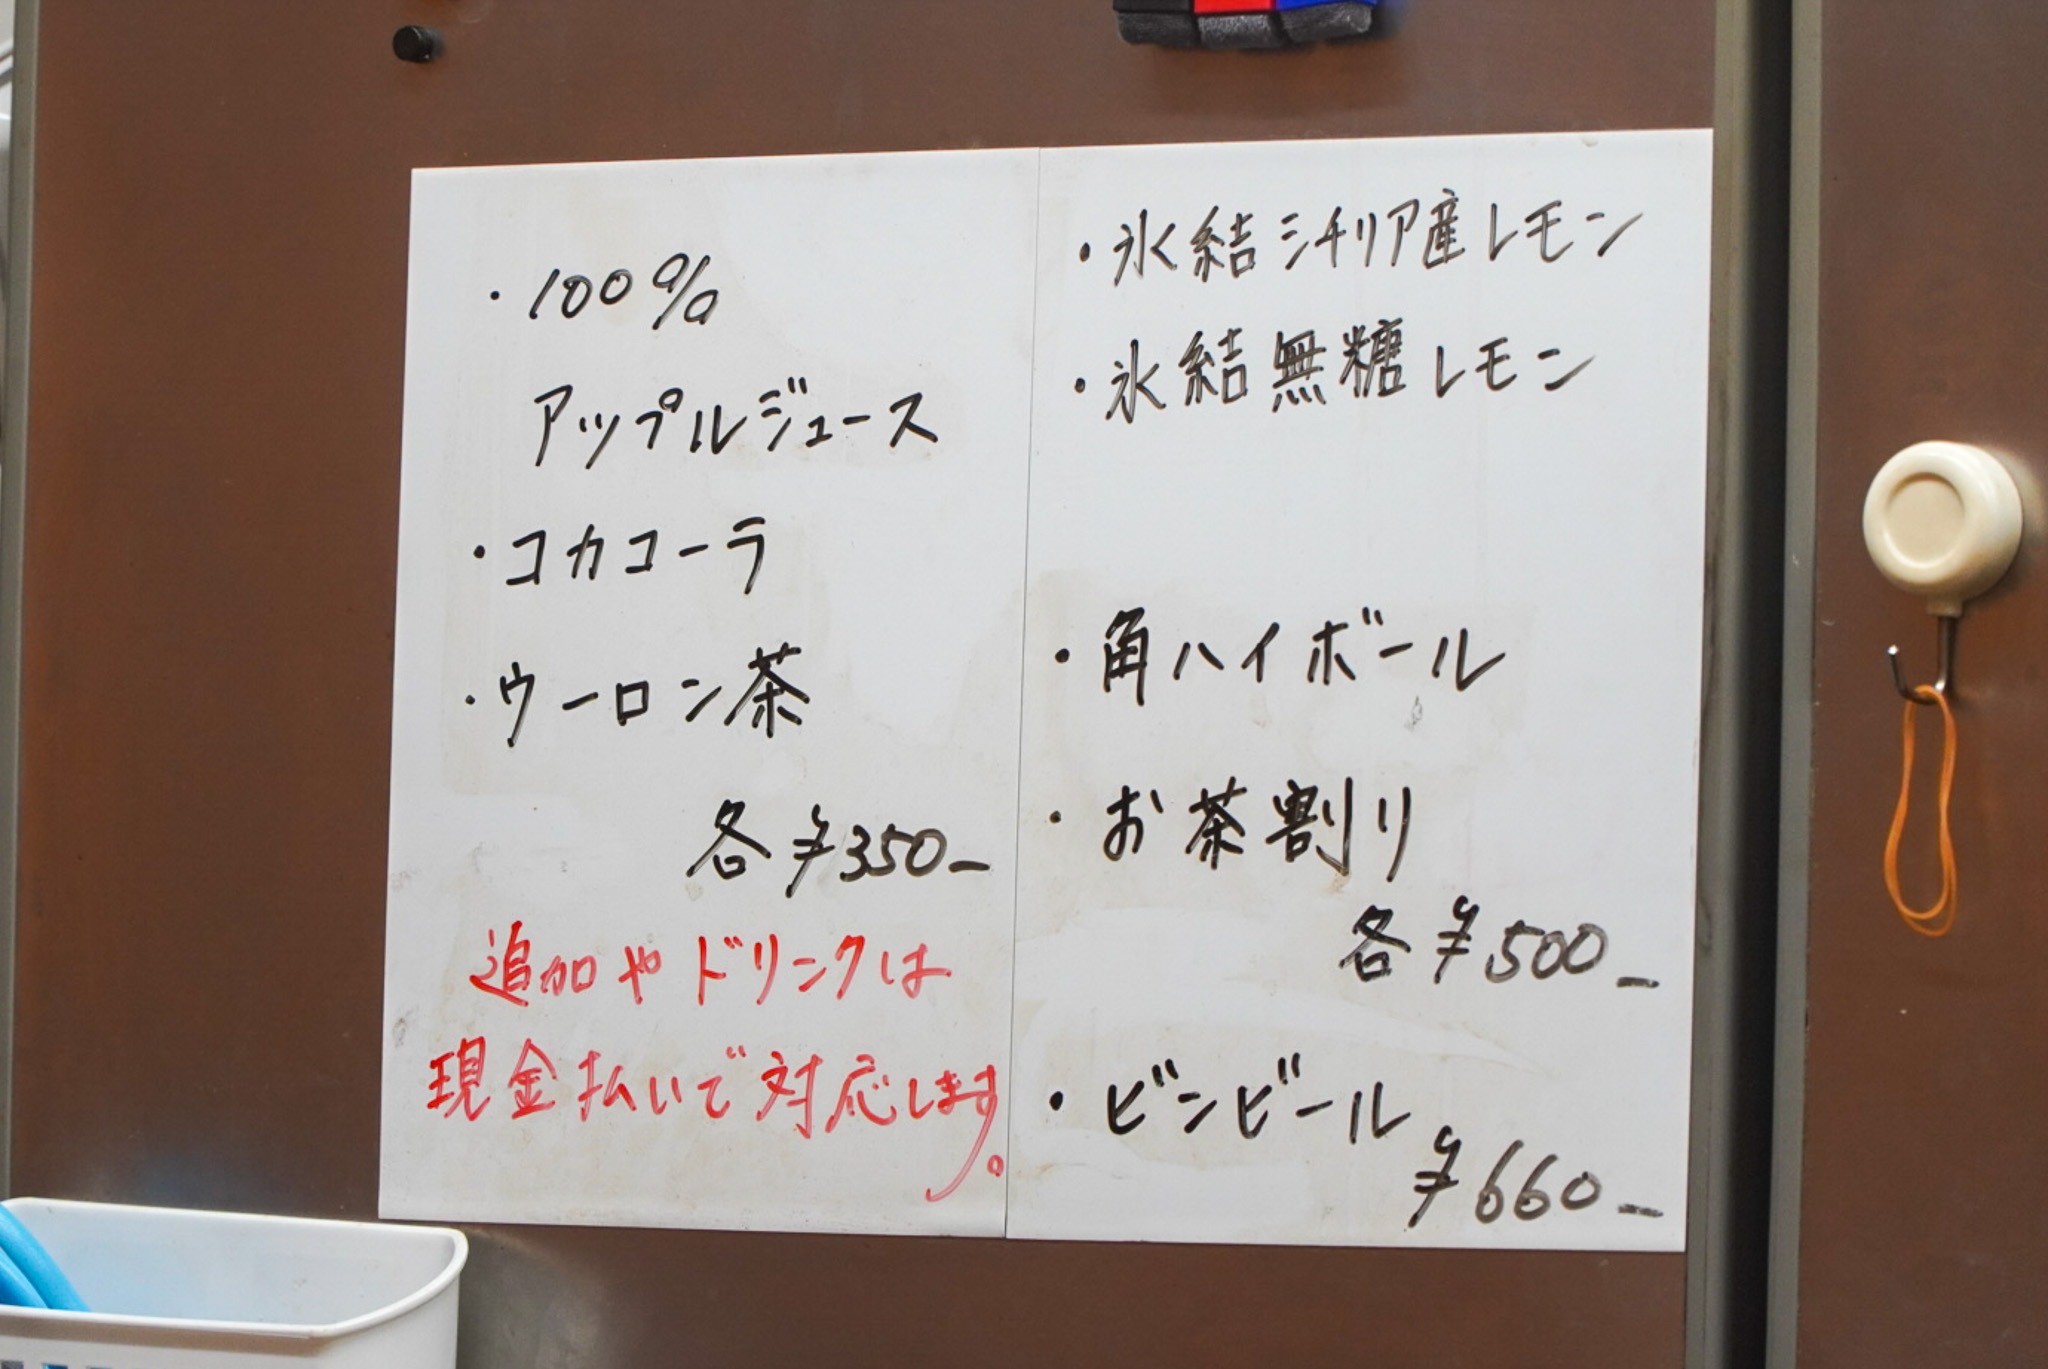 ・100%
アップルジュース
・コカコーラ
・ウーロン茶
各¥350-
追加やドリンクは
現金払いで対応します。
・氷結シチリア産レモン
・氷結無糖レモン
・角ハイボール
・お茶割り
各¥500-
・ビンビール
¥660-